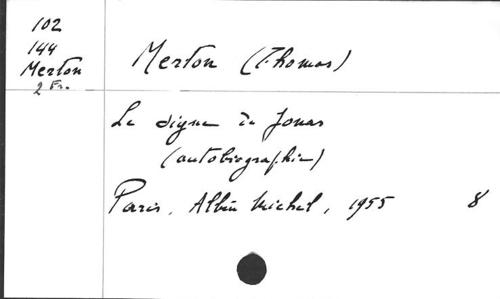 102
144
Merton
2 Ex.
Merton (Thomas)
Le signe de Jonas
(autobiographie)
Paris, Albin Michel, 1955 8